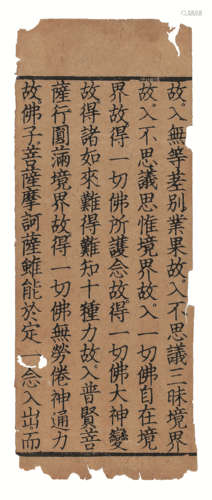 故入無等差別業果故入不思議三昧境界
故入不思議思惟境界故入一切佛自在境
界故得一切佛所護念故得一切佛大神變
故得諸如來難得難知十種力故入普賢菩
薩行圓滿境界故得一切佛無勞倦神通力
故佛子菩薩摩訶薩雖能於定一念入出而